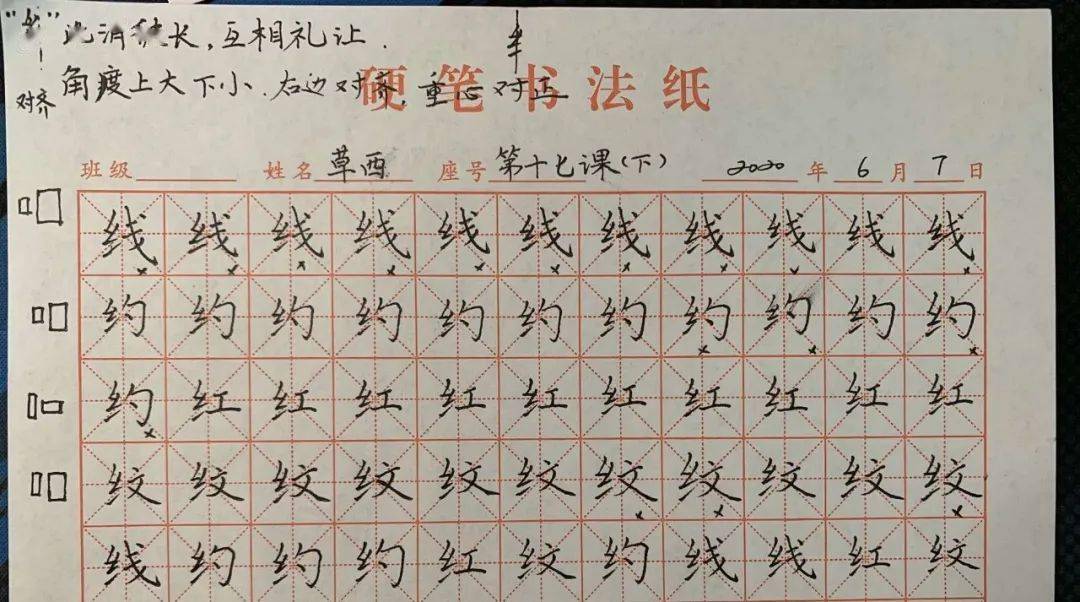 长,互相礼让.
对齐 角度上大下小.右边对齐,重心对正
硬笔书法纸
班级 姓名 草西 座号 第十七课(下) 2020 年 6 月 7 日
线 线 线 线 线 线 线 线 线 线 线
约 约 约 约 约 约 约 约 约 约 约
约 红 红 红 红 红 红 红 红 红 红
纹 纹 纹 纹 纹 纹 纹 纹 纹 纹 纹
线 约 约 约 红 纹 约 线 线 红 纹